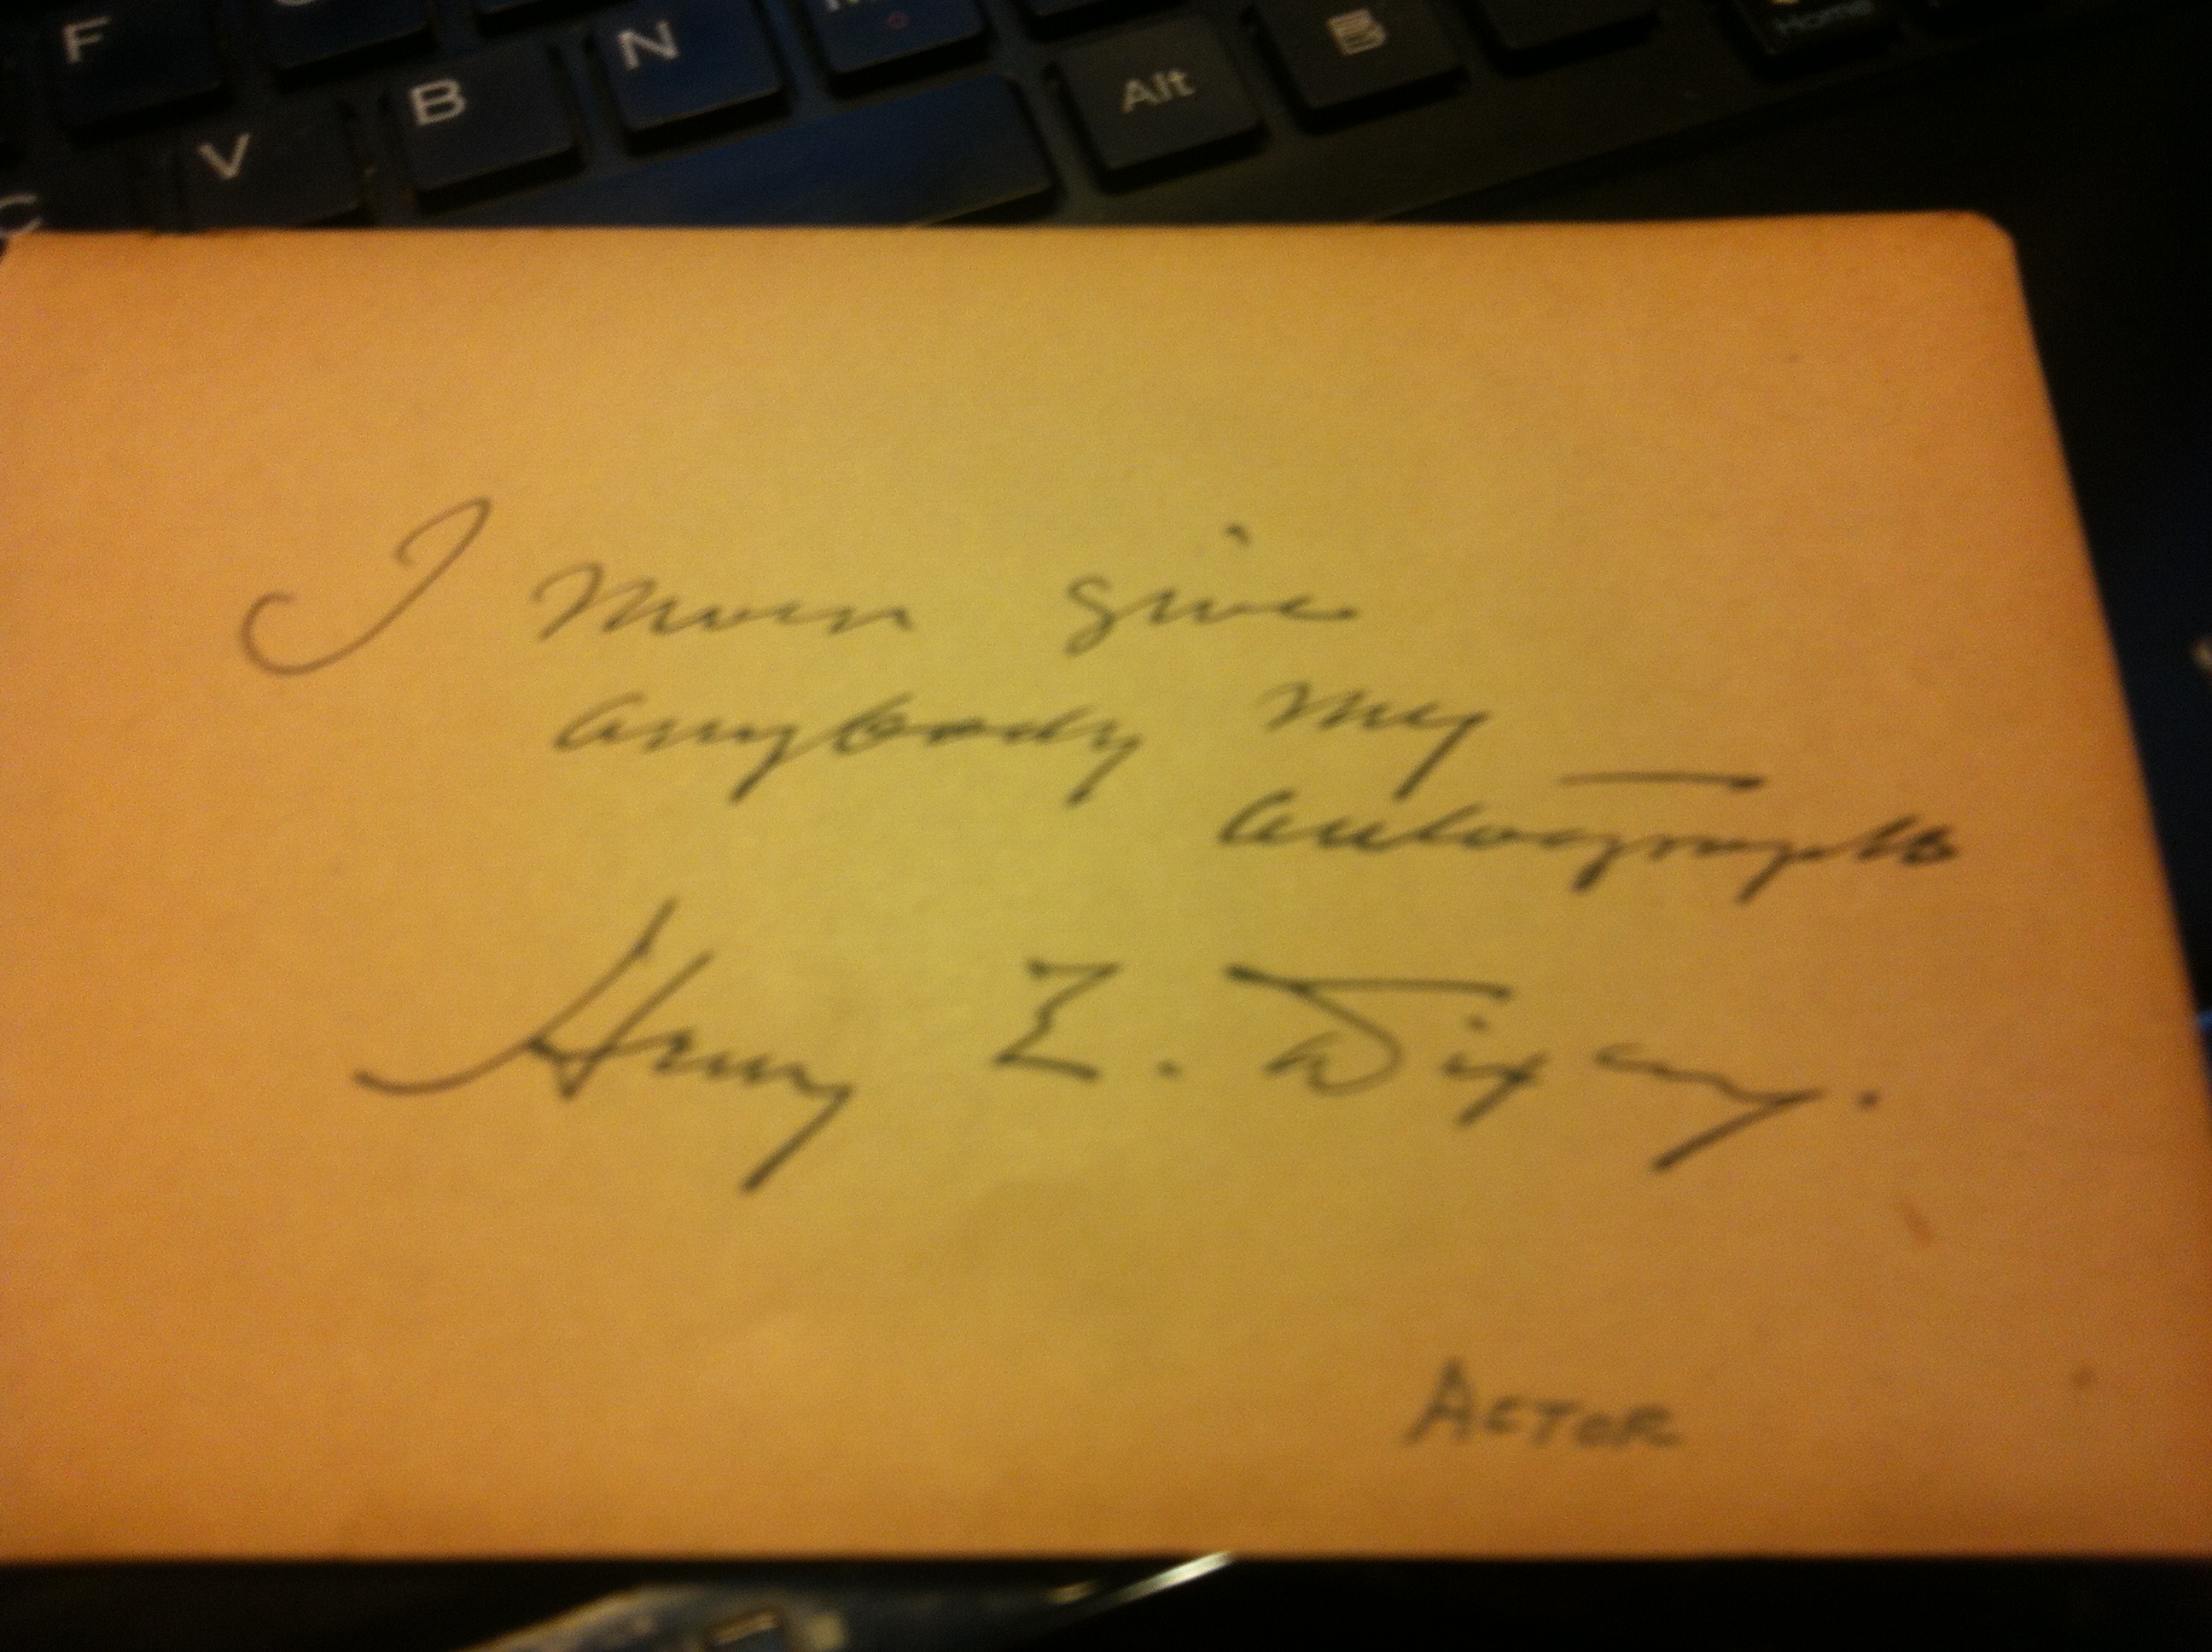 F
N
B
Alt
Home
V
C
I never give
anybody my
autograph
Henry E. Dixey.
ACTOR